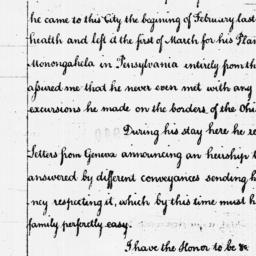 he came to this City the begining of February last
health and left it the first of March for his Plan
Monongahela in Pensylvania entirely from th
assured me that he never even met with any
excursions he made on the borders of the Ohi
During his stay here he re
Letters from Geneva announcing an heirship t
answered by different conveyances sending h
ney respecting it, which by this time must h
family perfectly easy.
I have the Honor to be &c